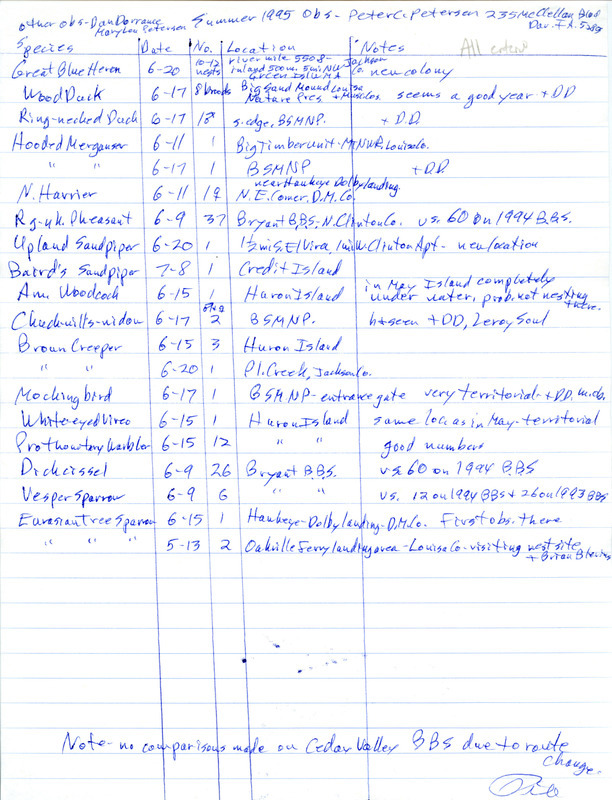 other obs- Dan Dorrance Summer 1995 Obs- Peter C. Petersen 235 McClellan Blvd
MaryLou Petersen Dav. IA.
Species Date No. Location Notes All entered
Great Blue Heron 6-20 10-12 nests river mile 550.8- inland 500m. 5mi NW Jackson Co. Green Isl WMA new colony
Wood Duck 6-17 8 broods Big Sand Mound Louisa Nature Pres. + Muscatine seems a good year + DD
Ring-necked Duck 6-17 1♂ s. edge, BSMNP + D.D.
Hooded Merganser 6-11 1 Big Timber unit- MTNWR, Louisa Co.
" " 6-17 1 BSMNP + D.D.
N. Harrier 6-11 1♀ near Hawkeye Dolby landing. N.E. Corner, D.M. Co.
Rg-nk. Pheasant 6-9 37 Bryant B.B.S., N. Clinton Co. vs. 60 on 1994 B.B.S.
Upland Sandpiper 6-20 1 1½ mi S. Elvira, 1 mi N. Clinton Apt- new location
Baird's Sandpiper 7-8 1 Credit Island
Am. Woodcock 6-15 1 Huron Island in May Island completely under water, prob. not nesting there.
Chuck-will's-widow 6-17 2 BSMNP. h + seen + DD, Leroy Soul
Brown Creeper 6-15 3 Huron Island
" " 6-20 1 Pl. Creek, Jackson Co.
Mockingbird 6-17 1 BSMNP- entrance gate very territorial- + DD.
White-eyed Vireo 6-15 1 Huron Island same loc. as in May- territorial
Prothonotary Warbler 6-15 12 " " good numbers
Dickcissel 6-9 26 Bryant B.B.S. vs. 60 on 1994 B.B.S
Vesper Sparrow 6-9 6 " " vs. 12 on 1994 BBS + 26 on 1993 BBS
Eurasian Tree Sparrow 6-15 1 Hawkeye-Dolby landing- D.M. Co. First obs. there
" " " 5-13 2 Oakville Ferry landing area- Louisa Co- visiting nest site
+ Brian Blevins
Note- no comparisons made on Cedar Valley BBS due to route
change.